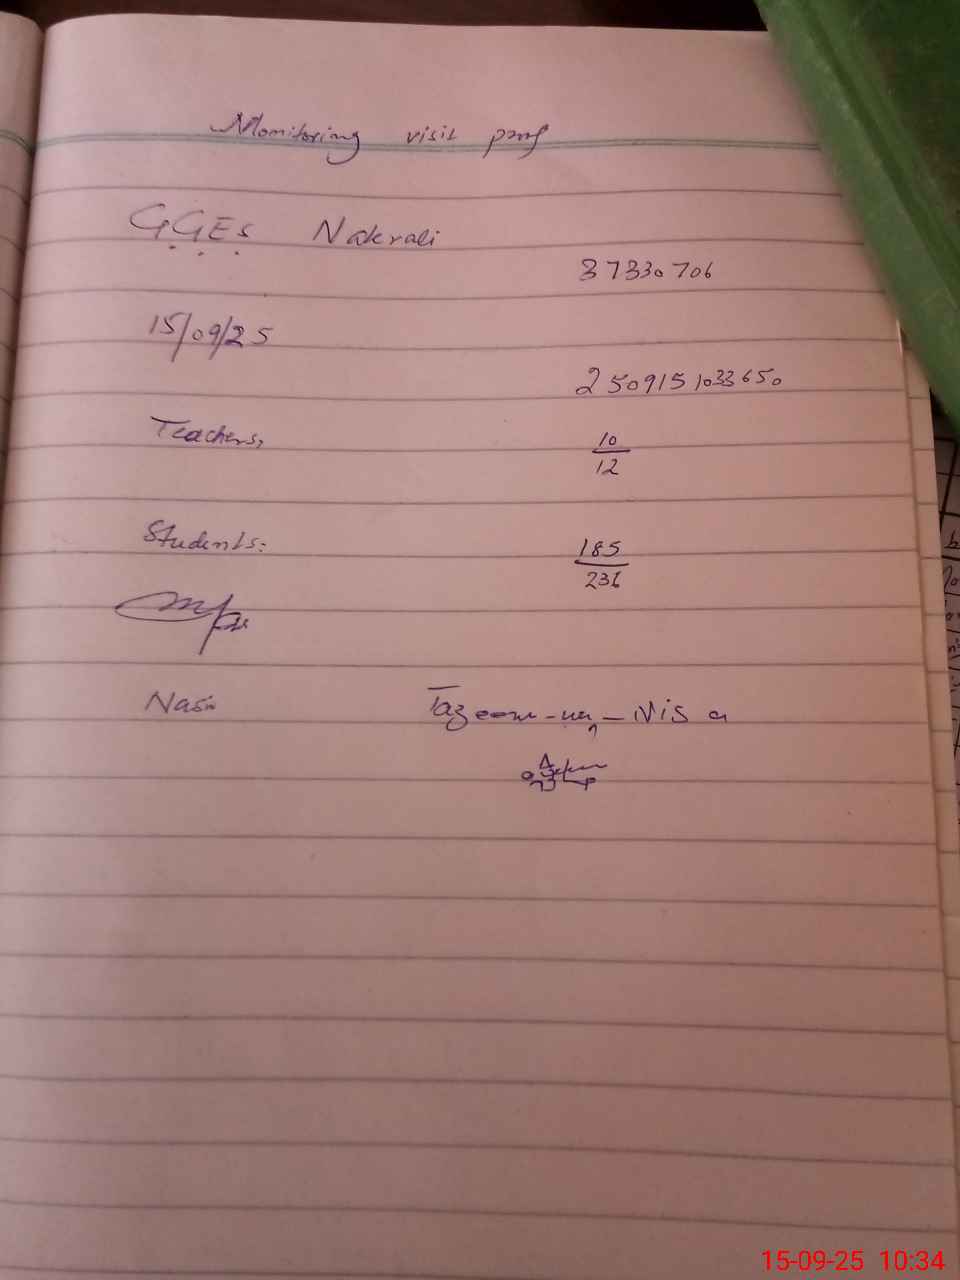 Monitoring visit proof
GGES Nakrali
37330706
15/09/25
250915 1033650
Teachers,
10
12
Students:
185
236
Tazeem-un-Nisa
15-09-25 10:34